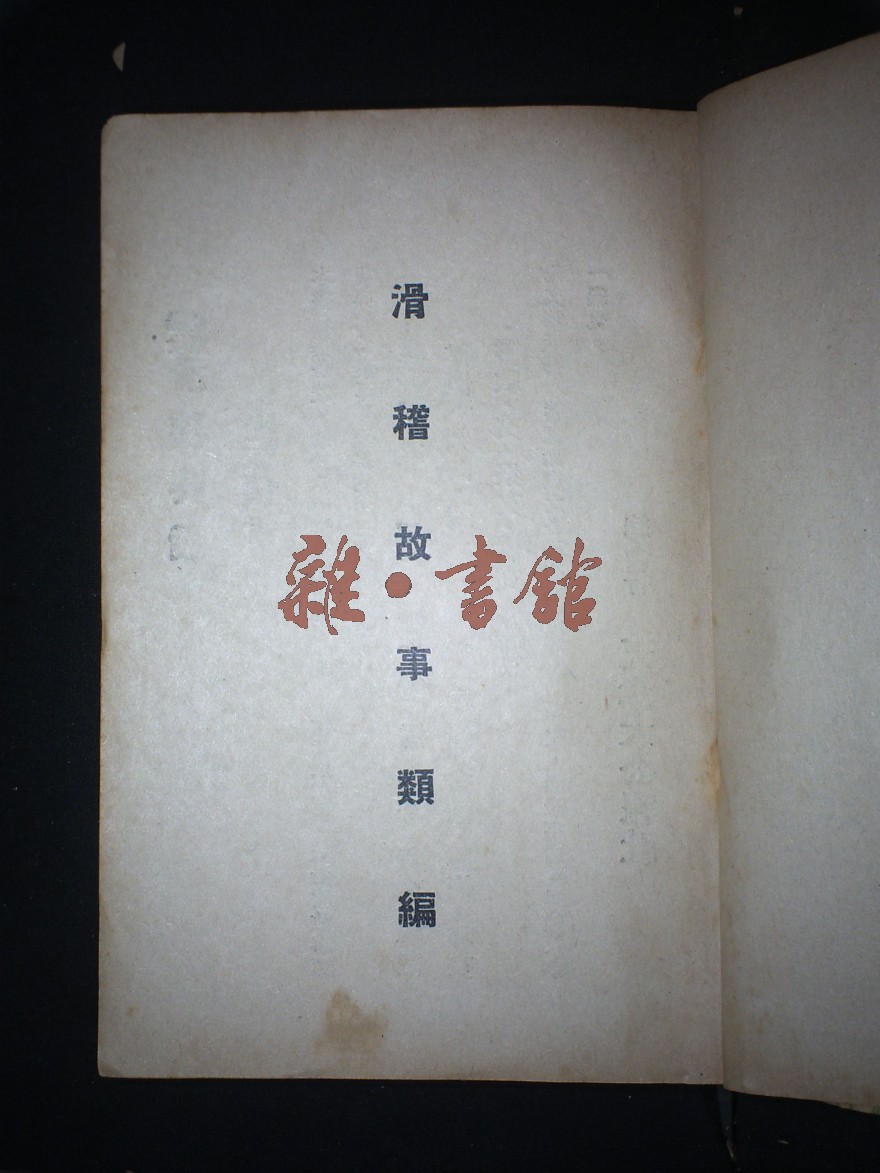 滑稽故事類編
雜·書館